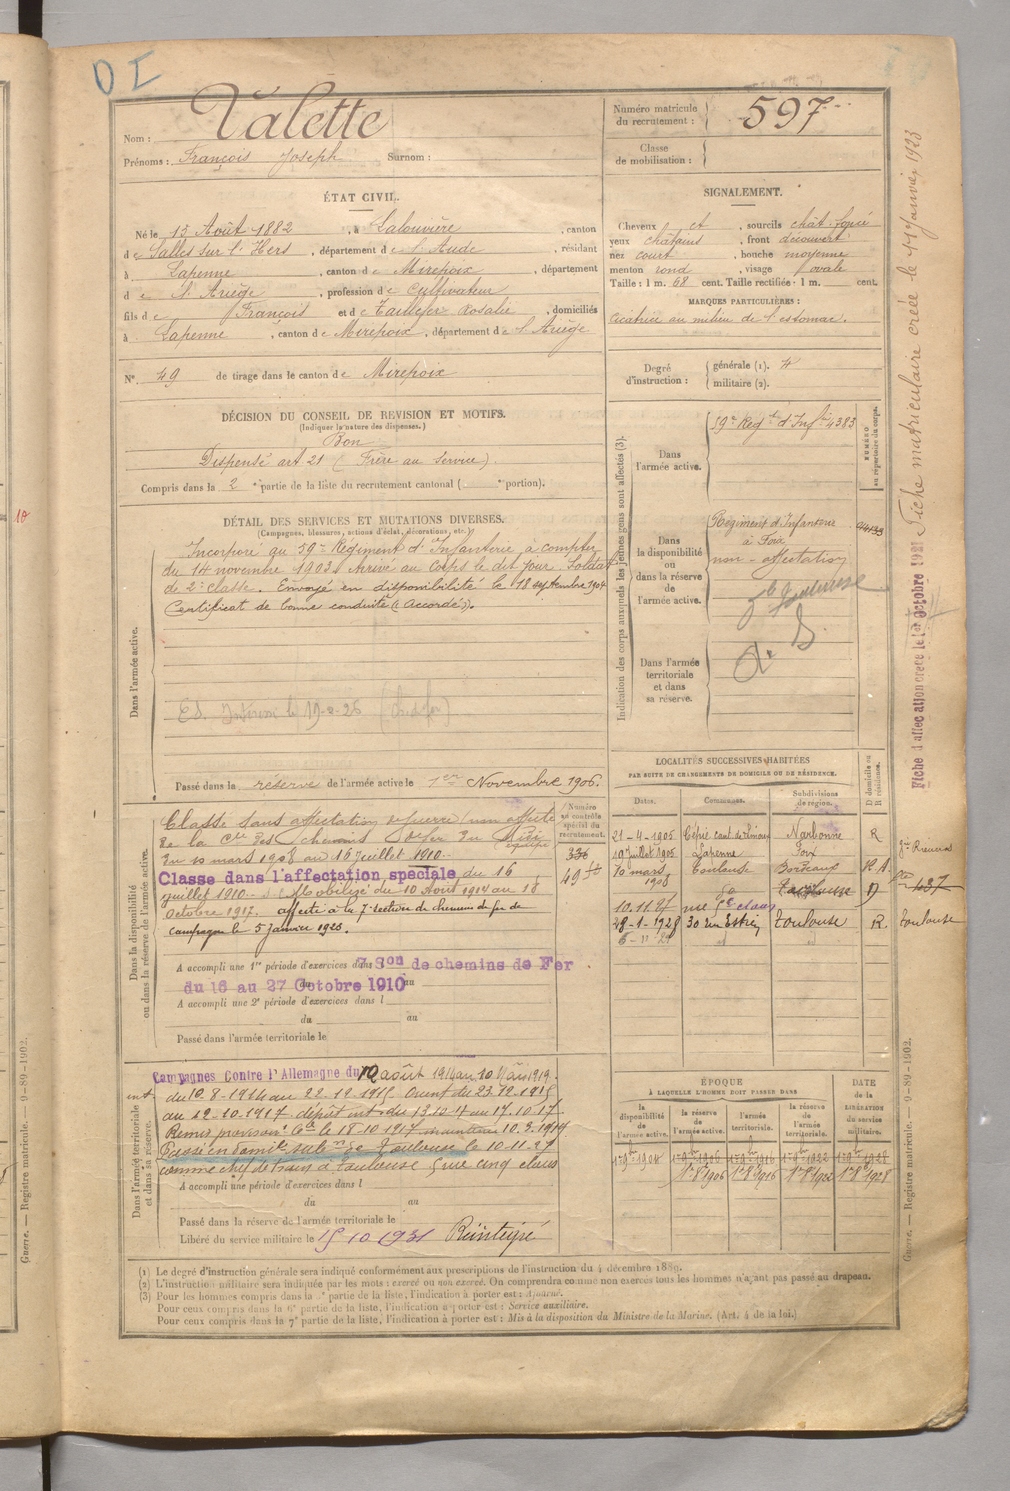 D I
Nom : Valette
Prénoms : François Joseph Surnom :
Numéro matricule du recrutement : 597
Classe de mobilisation :
ÉTAT CIVIL.
Né le 15 Août 1882, à Salouvière, canton
de Salles sur l'Hers, département de l'Aude, résidant
à Lapenne, canton de Mirepoix, département
de l'Ariège, profession de Cultivateur
fils de François et de Taillefer Rosalie, domiciliés
à Lapenne, canton de Mirepoix, département de l'Ariège
N° 49 de tirage dans le canton de Mirepoix
SIGNALEMENT.
Cheveux et, sourcils chât. foncé
yeux châtains, front découvert
nez court, bouche moyenne
menton rond, visage ovale
Taille : 1 m. 68 cent. Taille rectifiée : 1 m. cent.
MARQUES PARTICULIÈRES :
Cicatrice au milieu de l'estomac.
Degré d'instruction : générale (1). 4
militaire (2).
DÉCISION DU CONSEIL DE REVISION ET MOTIFS.
(Indiquer la nature des dispenses.)
Bon
Dispensé art 21 (Frère au service).
Compris dans la 2e partie de la liste du recrutement cantonal ( e portion).
DÉTAIL DES SERVICES ET MUTATIONS DIVERSES.
(Campagnes, blessures, actions d'éclat, décorations, etc.)
Dans l'armée active.
Incorporé au 59e Régiment d'Infanterie à compter
du 14 novembre 1903. Arrivé au Corps le dit jour. Soldat
de 2e classe. Envoyé en disponibilité le 18 septembre 1904
Certificat de bonne conduite "Accordé".
Passé dans la réserve de l'armée active le 1er Novembre 1906.
Indication des corps auxquels les jeunes gens sont affectés (3).
NUMÉRO au répertoire du corps.
Dans l'armée active.
59e Régt d'Infie 4383
Dans la disponibilité ou dans la réserve de l'armée active.
Régiment d'Infanterie
à Foix
non-affectation
Toulouse
Dans l'armée territoriale et dans sa réserve.
Dans la disponibilité ou dans la réserve de l'armée active.
Classé sans affectation
de la Cie des chemins de fer du Midi
équipe
du 10 mars 1908 au 16 juillet 1910
Classé dans l'affectation spéciale du 16
juillet 1910 Mobilisé du 10 Août 1914 au 18
Octobre 1917. affecté à la 7e section de chemin de fer de
campagne le 5 janvier 1923.
Numéro au contrôle spécial du recrutement.
336
49
A accompli une 1re période d'exercices dans 7 Son de chemins de Fer
du 16 au 27 Octobre 1910
A accompli une 2e période d'exercices dans l
du au
Passé dans l'armée territoriale le
LOCALITÉS SUCCESSIVES HABITÉES
PAR SUITE DE CHANGEMENTS DE DOMICILE OU DE RÉSIDENCE.
Dates. Communes. Subdivisions de région. D domicile ou R résidence.
21-4-1905 Cépie cant. de Limoux Narbonne R
10 juillet 1905 Lapenne Foix
10 mars 1908 Toulouse Bordeaux R.A.
10.11.27 rue Cq clous Toulouse D
28-1-1928 30 rue Toulouse R. Toulouse
437
Dans l'armée territoriale et dans sa réserve.
Campagnes Contre l'Allemagne du 10 août 1914 au 10 Mai 1919.
int. du 10.8-1914 au 22.12.1915 Orient du 23.12.1915
au 12-10-1917 dépôt int. du 13.10.17 au 17.10.17.
le 18-10-1917 maintenu 10.9.1914
Passé en domle subon de Toulouse le 10-11-27
comme chef de train à Toulouse 5 rue cinq clous
A accompli une période d'exercices dans l
du au
Passé dans la réserve de l'armée territoriale le
Libéré du service militaire le 15 10 1931 Réintégré
ÉPOQUE
À LAQUELLE L'HOMME DOIT PASSER DANS
DATE de la LIBÉRATION du service militaire.
la disponibilité de l'armée active. la réserve de l'armée active. l'armée territoriale. la réserve de l'armée territoriale.
1r 9bre 1904 1r 9bre 1906 1r 9bre 1916 1r 9bre 1922 1r 9bre 1928
1r 8 1906 1r 8 1916 1r 8 1922 1r 8 1928
(1) Le degré d'instruction générale sera indiqué conformément aux prescriptions de l'instruction du 4 décembre 1889.
(2) L'instruction militaire sera indiquée par les mots : exercé ou non exercé. On comprendra comme non exercés tous les hommes n'ayant pas passé au drapeau.
(3) Pour les hommes compris dans la 5e partie de la liste, l'indication à porter est : Ajourné.
Pour ceux compris dans la 6e partie de la liste, l'indication à porter est : Service auxiliaire.
Pour ceux compris dans la 7e partie de la liste, l'indication à porter est : Mis à la disposition du Ministre de la Marine. (Art. 4 de la loi.)
Fiche matriculaire créée le 11 Janvier 1923
Fiche d'affectation créée le 1er Octobre 1921
Guerre. — Registre matricule. — 9-89-1902.
Guerre. — Registre matricule. — 9-89-1902.